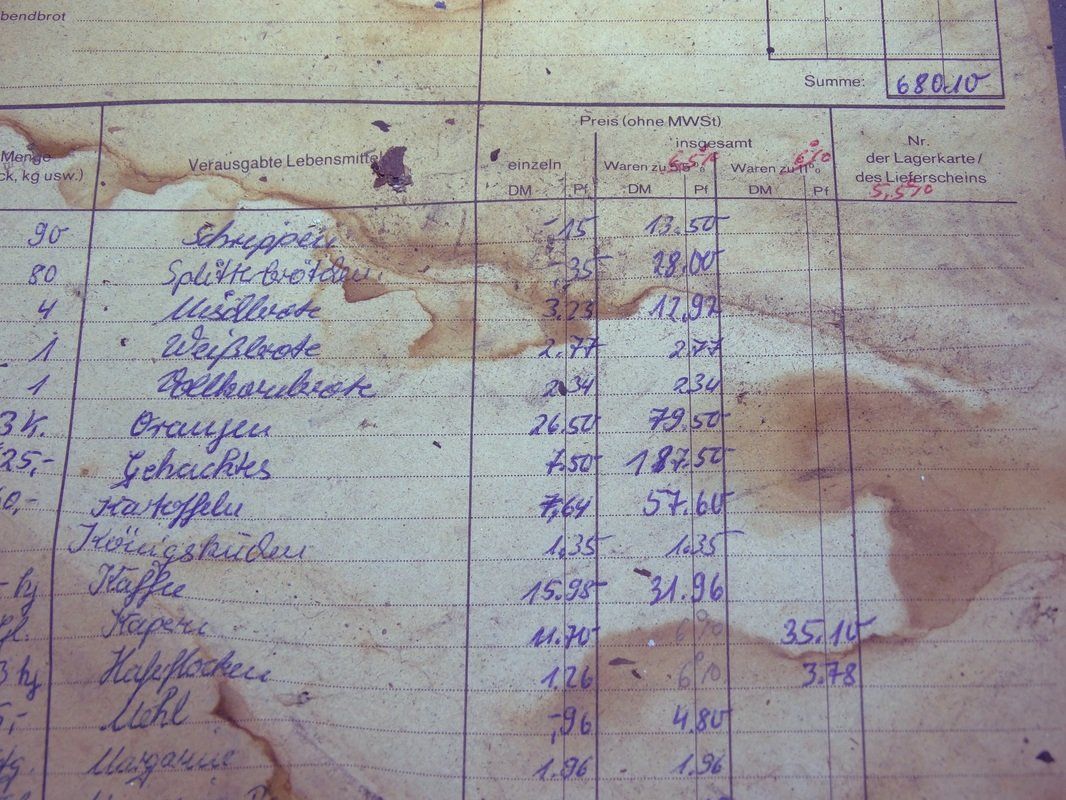 bendbrot
Summe: 680.10
Preis (ohne MWSt)
Menge Verausgabte Lebensmittel einzeln insgesamt Nr.
ck, kg usw.) Waren zu 5,5% Waren zu 11% der Lagerkarte/
5,5% 6% des Lieferscheins
DM Pf DM Pf DM Pf 5,5%
90 Schrippen -15 13.50
80 Splitterbrötchen -,35 28.00
4 Mischbrote 3.23 12.92
1 Weißbrote 2.77 2.77
1 Vollkornbrote 2.34 2.34
3 K. Orangen 26.50 79.50
25,- Gehacktes 7.50 187.50
0,- Kartoffeln 7,64 57.60
1,35 1.35
kg Kaffee 15.98 31.96
gl. Kapern 11.70 6% 35.10
3 kg Haferflocken 1.26 6% 3.78
5,- Mehl -,96 4.80
Margarine 1.96 1.96